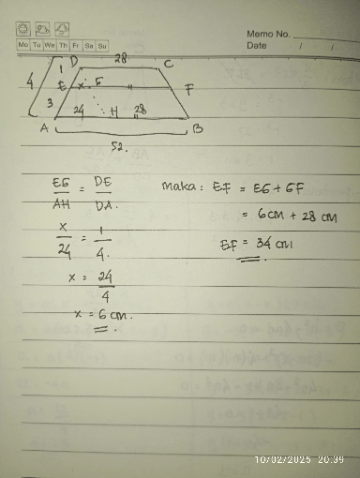 Memo No.
Mo Tu We Th Fr Sa Su
Date / /
D 28 C
4 1 E x G F
3 24 H 28
A B
52.
EG/AH = DE/DA.
x/24 = 1/4.
x = 24/4
x = 6 cm.
maka : EF = EG + GF
= 6 cm + 28 cm
EF = 34 cm
10/02/2025 20:39